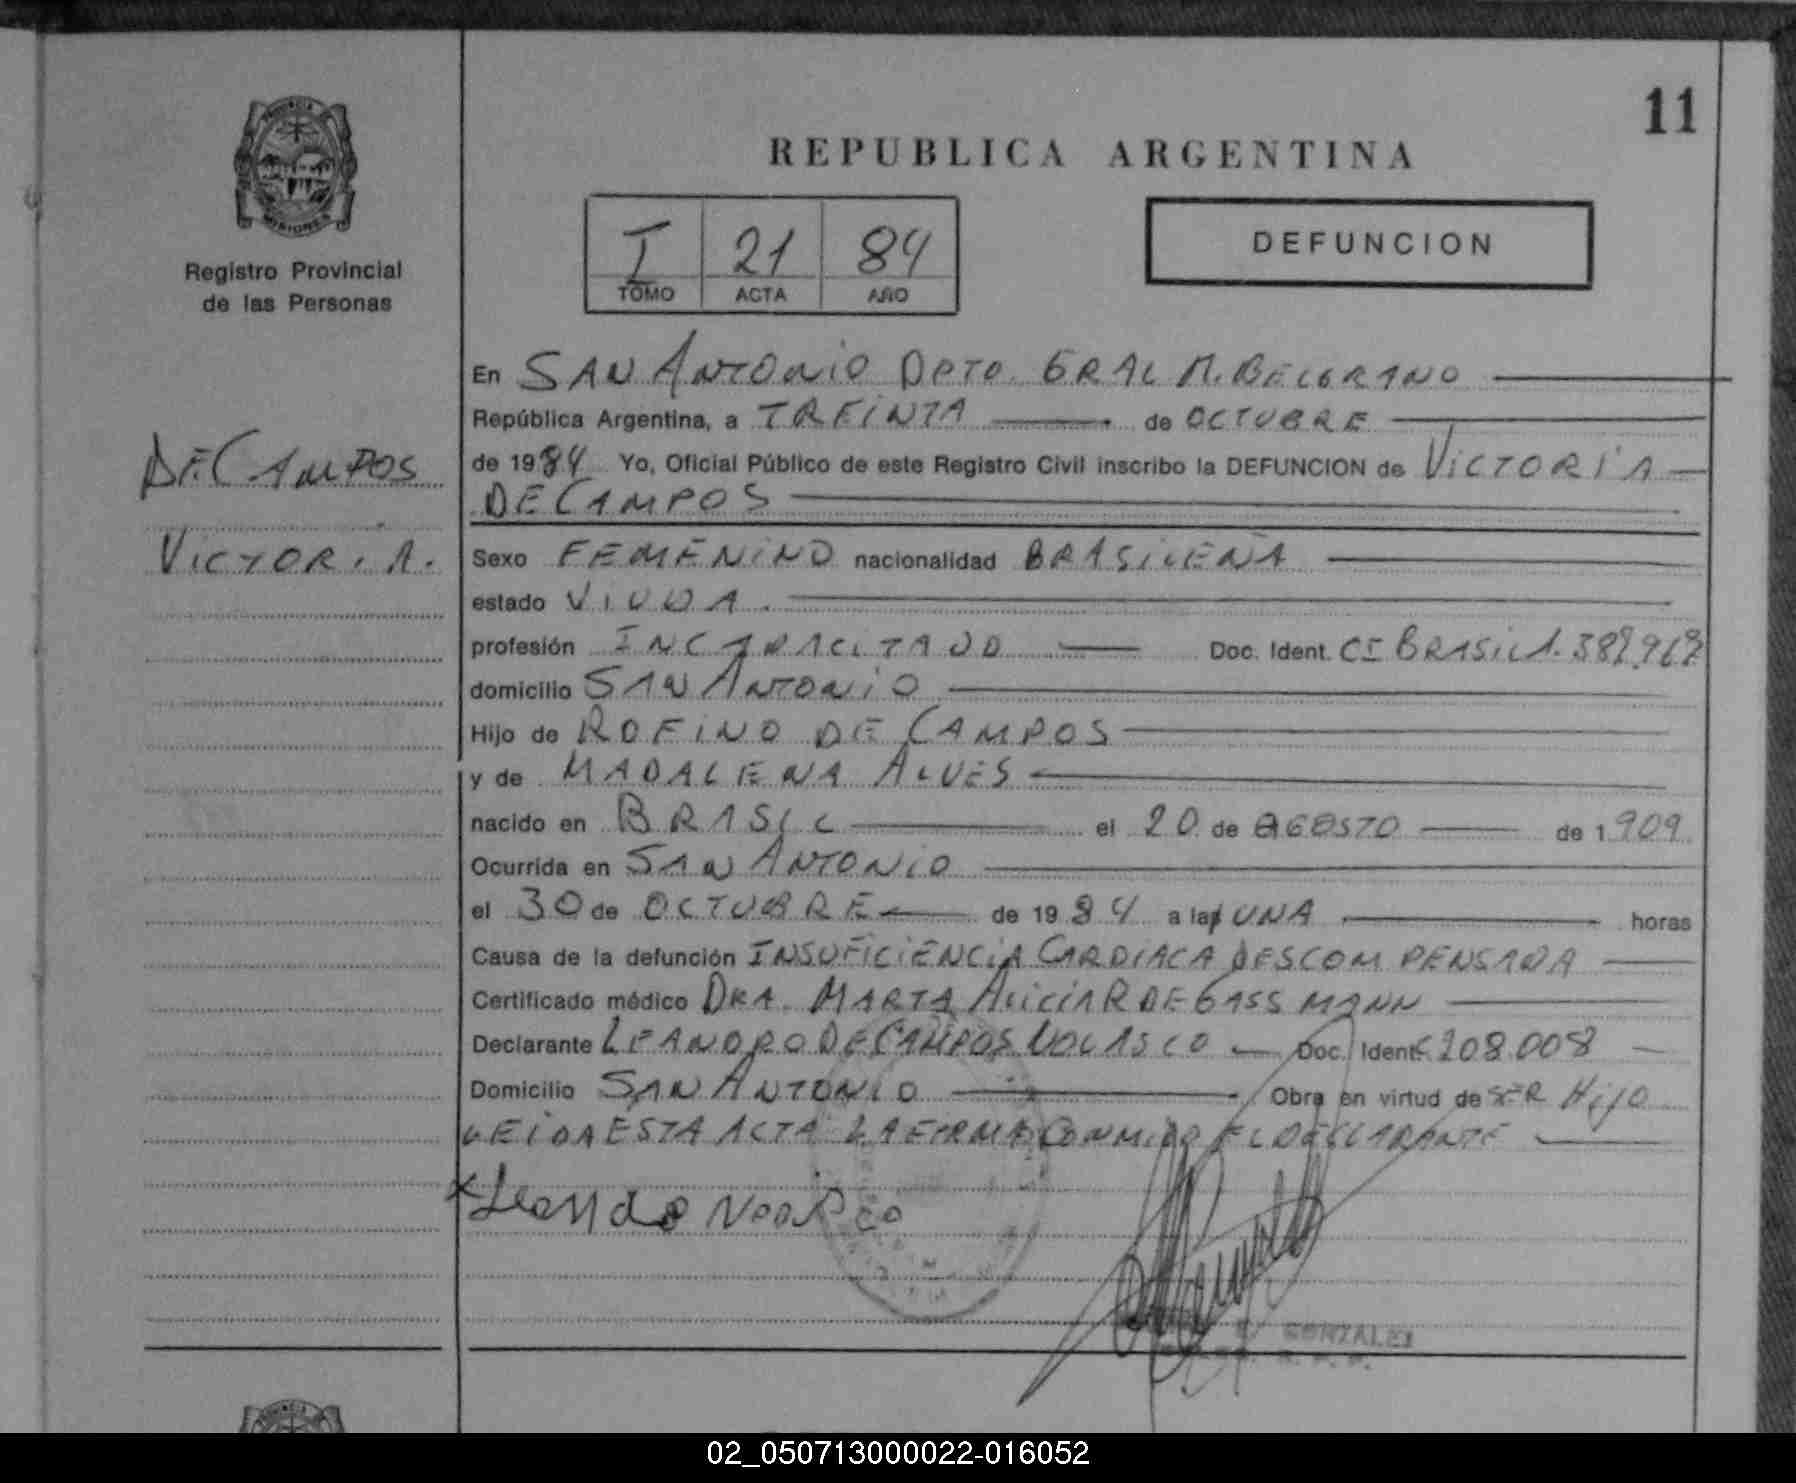 11
REPUBLICA ARGENTINA
PROVINCIA DE
MISIONES
Registro Provincial
de las Personas
I 21 84
TOMO ACTA AÑO
DEFUNCION
En SAN ANTONIO DPTO. GRAL M. BELGRANO
República Argentina, a TREINTA de OCTUBRE
DE CAMPOS
VICTORIA.
de 1984 Yo, Oficial Público de este Registro Civil inscribo la DEFUNCION de VICTORIA
DE CAMPOS
Sexo FEMENINO nacionalidad BRASILEÑA
estado VIUDA.
profesión INCAPACITADO Doc. Ident. CI BRASIL
domicilio SAN ANTONIO
Hijo de ROFINO DE CAMPOS
y de MADALENA ALVES
nacido en BRASIL el 20 de AGOSTO de 1909
Ocurrida en SAN ANTONIO
el 30 de OCTUBRE de 1984 a las UNA horas
Causa de la defunción INSUFICIENCIA CARDIACA DESCOMPENSADA
Certificado médico DRA. MARTA ALICIA R DE GASSMANN
Declarante LEANDRO DE CAMPOS NOLASCO Doc. Ident. 208.008
Domicilio SAN ANTONIO Obra en virtud de SER HIJO
LEIDA ESTA ACTA LA FIRMA CONMIGO EL DECLARANTE
GONZALEZ
02_050713000022-016052